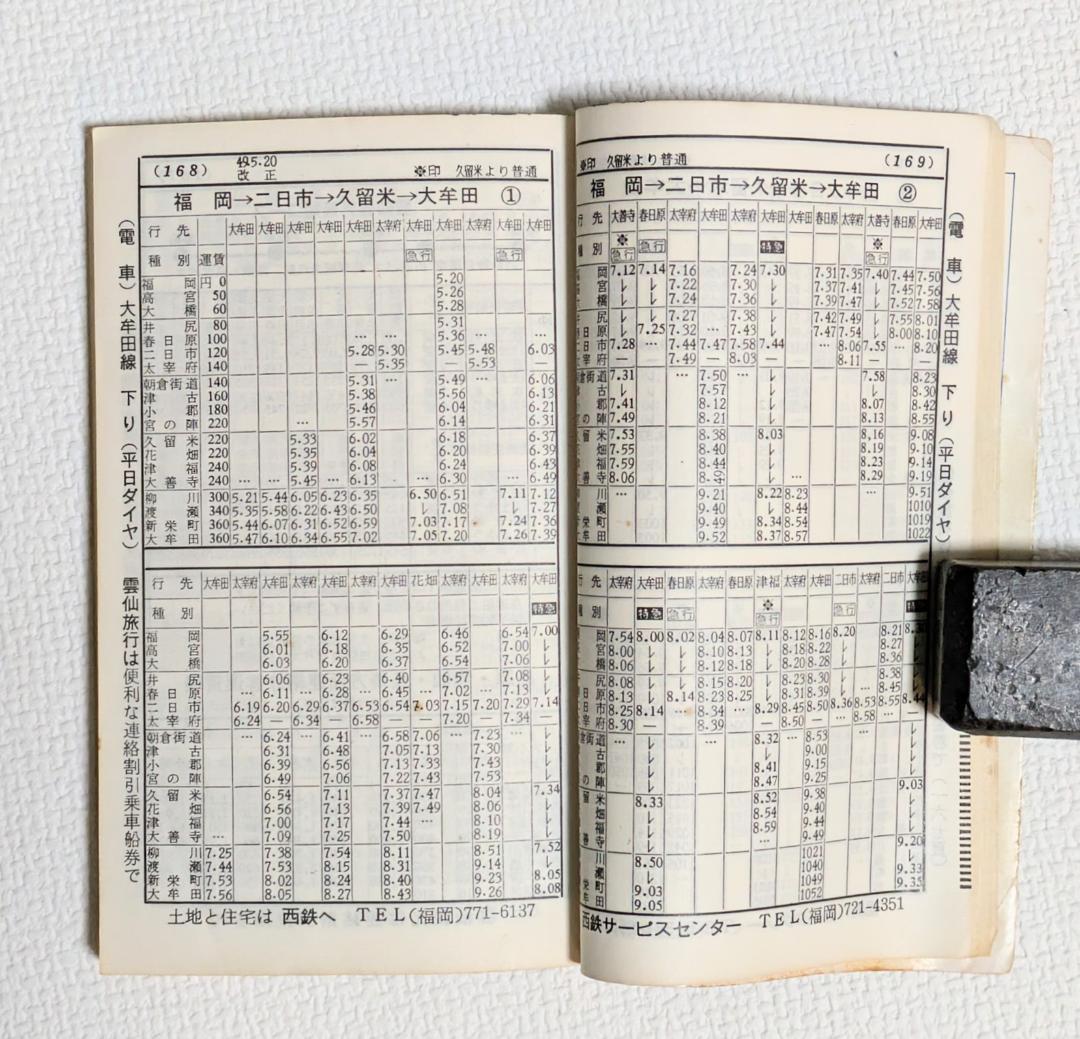 (168) 49.5.20 改正 ※印 久留米より普通
福 岡→二日市→久留米→大牟田 ①
行先 大牟田 大牟田 大牟田 大牟田 大牟田 太宰府 大牟田 大牟田 太宰府 大牟田 大牟田
種別 運賃 急行 急行
福岡 円 0 5.20
高宮 50 5.26
大橋 60 5.28
井尻 80 5.31
春日原 100 … … 5.36 …
二日市 120 5.28 5.30 5.45 5.48 6.03
太宰府 140 — 5.35 — 5.53 —
朝倉街道 140 5.31 … 5.49 … 6.06
津古 160 5.38 5.56 6.13
小郡 180 5.46 6.04 6.21
宮の陣 220 … 5.57 6.14 6.31
久留米 220 5.33 6.02 6.18 6.37
花畑 220 5.35 6.04 6.20 6.39
津福 240 5.39 6.08 6.24 6.43
大善寺 240 … … 5.45 … 6.13 … 6.30 … 6.49
柳川 300 5.21 5.44 6.05 6.23 6.35 6.50 6.51 7.11 7.12
渡瀬 340 5.35 5.58 6.22 6.43 6.50 レ 7.08 レ 7.27
新栄町 360 5.44 6.07 6.31 6.52 6.59 7.03 7.17 7.24 7.36
大牟田 360 5.47 6.10 6.34 6.55 7.02 7.05 7.20 7.26 7.39
行先 大牟田 太宰府 大牟田 太宰府 大牟田 太宰府 大牟田 花畑 太宰府 大牟田 太宰府 大牟田
種別 特急
福岡 5.55 6.12 6.29 6.46 6.54 7.00
高宮 6.01 6.18 6.35 6.52 7.00 レ
大橋 6.03 6.20 6.37 6.54 7.06 レ
井尻 6.06 6.23 6.40 6.57 7.08 レ
春日原 … 6.11 … 6.28 … 6.45 … 7.02 … 7.13 レ
二日市 6.19 6.20 6.29 6.37 6.53 6.54 7.03 7.15 7.20 7.29 7.14
太宰府 6.24 — 6.34 — 6.58 — — 7.20 — 7.34 —
朝倉街道 … 6.24 … 6.41 … 6.58 7.06 … 7.23 … レ
津古 6.31 6.48 7.05 7.13 7.30 レ
小郡 6.39 6.56 7.13 7.33 7.43 レ
宮の陣 6.49 7.06 7.22 7.43 7.53 レ
久留米 6.54 7.11 7.37 7.47 8.04 7.34
花畑 6.56 7.13 7.39 7.49 8.06 レ
津福 7.00 7.17 7.44 … 8.10 レ
大善寺 … 7.09 7.25 7.50 8.19 レ
柳川 7.25 7.38 7.54 8.11 8.51 7.52
渡瀬 7.44 7.53 8.15 8.31 9.14 レ
新栄町 7.53 8.02 8.24 8.40 9.23 8.05
大牟田 7.56 8.05 8.27 8.43 9.26 8.08
土地と住宅は 西鉄へ TEL(福岡)771-6137
(電車) 大牟田線 下り (平日ダイヤ) 雲仙旅行は便利な連絡割引乗車船券で
※印 久留米より普通 (169)
福 岡→二日市→久留米→大牟田 ②
行先 大善寺 春日原 太宰府 大牟田 太宰府 大牟田 大牟田 春日原 太宰府 大善寺 春日原 大牟田
種別 ※急行 急行 特急 ※急行
岡 7.12 7.14 7.16 7.24 7.30 7.31 7.35 7.40 7.44 7.50
宮 レ レ 7.22 7.30 レ 7.37 7.41 レ 7.45 7.56
橋 レ レ 7.24 7.36 レ 7.39 7.47 レ 7.52 7.58
尻 レ レ 7.27 7.38 レ 7.42 7.49 レ 7.55 8.01
日原 レ 7.25 7.32 … 7.43 レ 7.47 7.54 レ 8.00 8.10
日市 7.28 … 7.44 7.47 7.58 7.44 … 8.06 7.55 … 8.20
宰府 — 7.49 — 8.03 — 8.11 — —
倉街道 7.31 … 7.50 … レ … 7.58 8.23
古 レ 7.57 レ レ 8.30
郡 7.41 8.12 レ 8.07 8.42
の陣 7.49 8.21 レ 8.13 8.55
留米 7.53 8.38 8.03 8.16 9.08
畑 7.55 8.40 レ 8.19 9.10
福 7.59 8.44 レ 8.23 9.14
善寺 8.06 8.49 レ … 8.29 9.19
川 … 9.21 8.22 8.23 … 9.51
瀬 9.40 レ 8.44 1010
町 9.49 8.34 8.54 1019
田 9.52 8.37 8.57 1022
行先 太宰府 大牟田 春日原 太宰府 春日原 津福 太宰府 大牟田 二日市 太宰府 二日市
種別 特急 急行 ※急行 急行
岡 7.54 8.00 8.02 8.04 8.07 8.11 8.12 8.16 8.20 8.21
宮 8.00 レ レ 8.10 8.13 レ 8.18 8.22 レ 8.27
橋 8.06 レ レ 8.12 8.18 レ 8.20 8.28 レ 8.36
尻 8.08 レ レ 8.15 8.20 レ 8.23 8.30 レ 8.38
日原 8.13 レ 8.14 8.23 8.25 レ 8.31 8.39 レ … 8.45
日市 8.25 8.14 … 8.34 … 8.29 8.45 8.50 8.36 8.53 8.55
宰府 8.30 — 8.39 — 8.50 — … 8.58 …
街道 … レ … 8.32 … 8.53 …
古 レ レ 9.00
郡 レ 8.41 9.15
の陣 レ 8.47 9.25
留米 8.33 8.52 9.38 9.03
畑 レ 8.54 9.40 レ
福 レ 8.59 9.44 レ
善寺 レ … 9.49 レ
川 8.50 1021 9.20
瀬 レ 1040 レ
町 9.03 1049 9.33
田 9.05 1052 9.35
西鉄サービスセンター TEL(福岡)721-4351
(電車) 大牟田線 下り (平日ダイヤ)